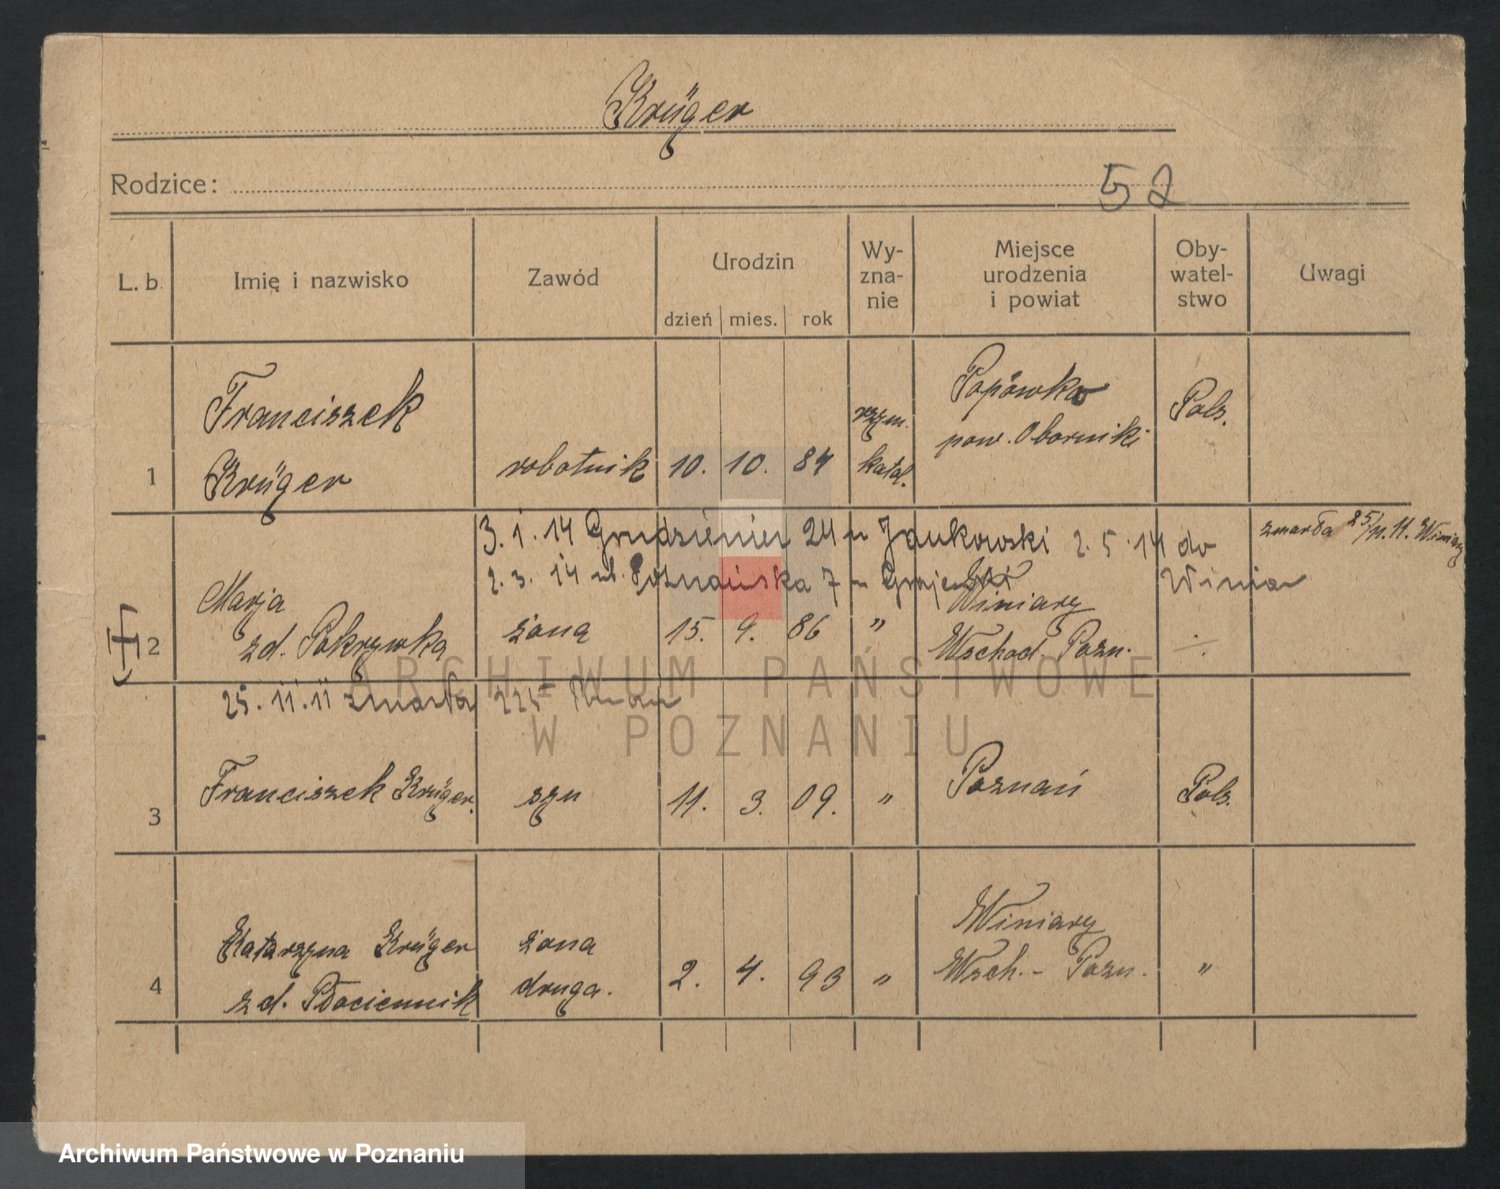 Krüger
Rodzice:
52
L. b. Imię i nazwisko Zawód Urodzin dzień mies. rok Wy-zna-nie Miejsce urodzenia i powiat Oby-watel-stwo Uwagi
Franciszek Popówka Pols.
rzym. pow. Oborniki
1 Krüger robotnik 10. 10. 84 katol.
3. 1. 14 24 u Jankowski 2. 5. 14 do zmarła 25/11. 11. Winiary
2. 3. 14 ul. Poznańska 7 u
Marja Winiary
2 zd. Pokrzywka żona 15. 9. 86 " Wschod. Pozn. ÷
25. 11. 11 zmarła
3 Franciszek Krüger. syn 11. 3. 09. " Poznań Pols.
Katarzyna Krüger żona Winiary
4 zd. Płociennik druga. 2. 4. 93 " Wsch.- Pozn. "
ARCHIWUM PAŃSTWOWE
W POZNANIU
Archiwum Państwowe w Poznaniu